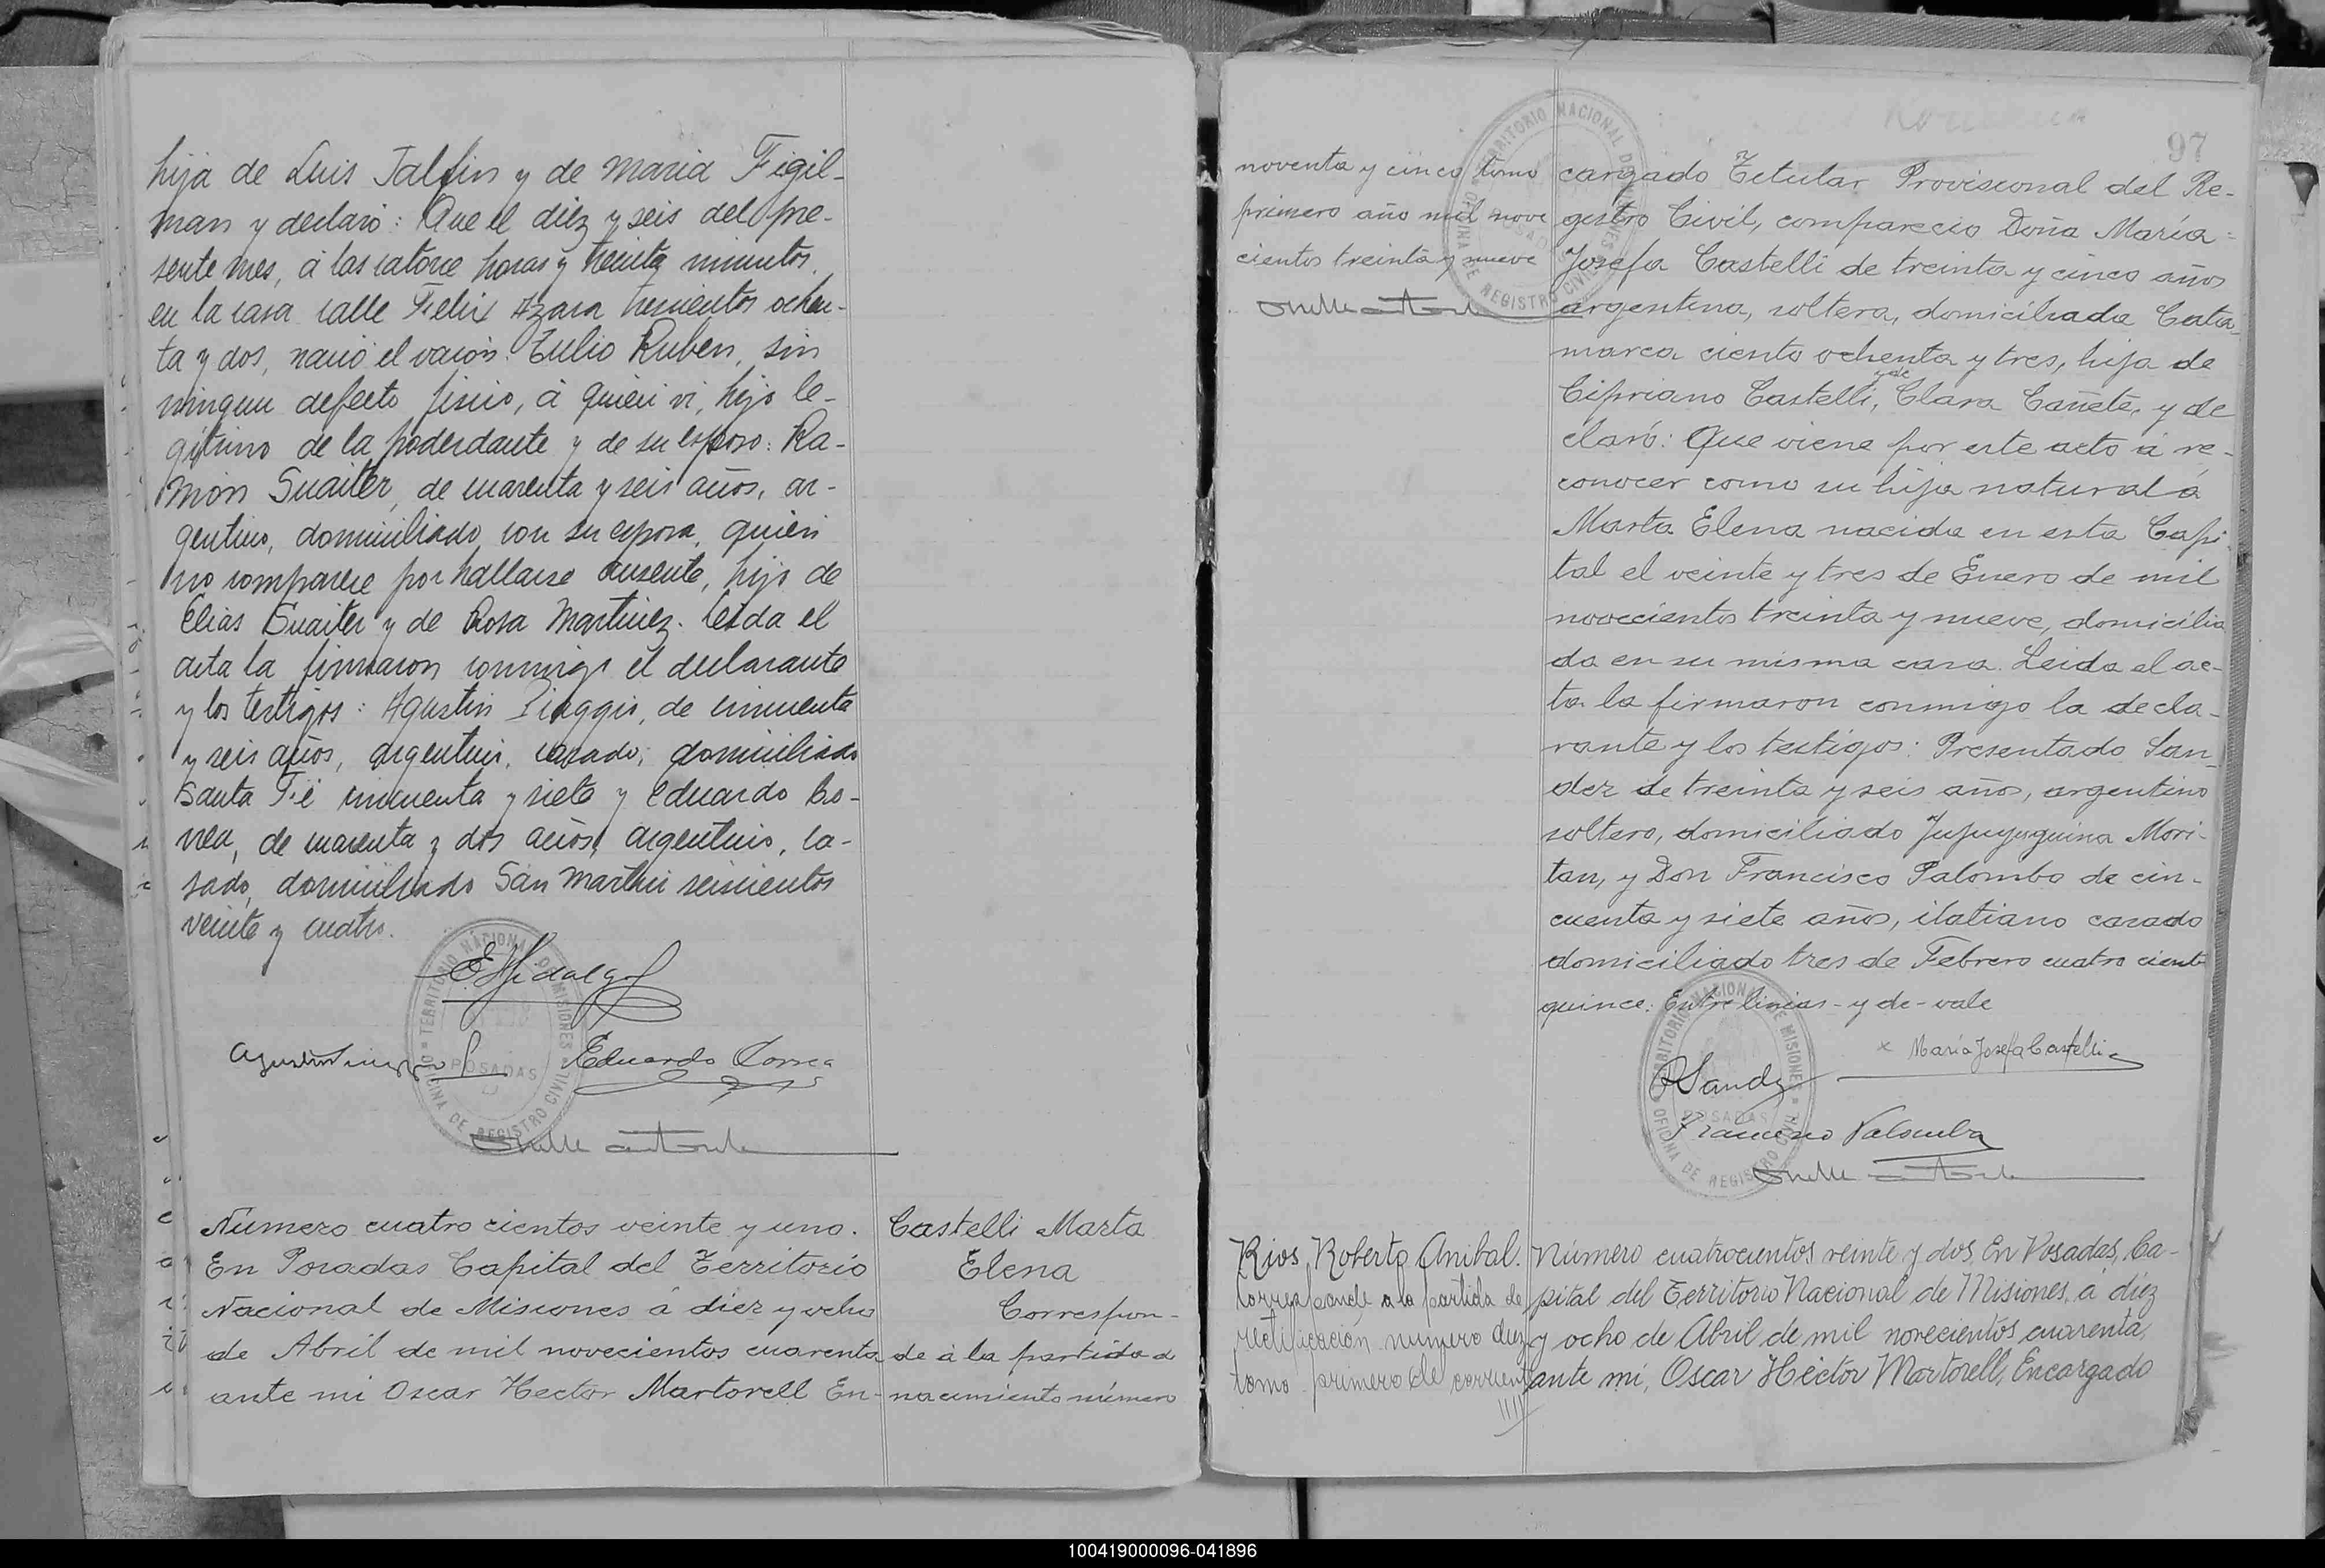 hija de Luis Jalfin y de Maria Figil-
man y declaró: Que el diez y seis del pre-
sente mes, á las catorce horas y treinta minutos,
en la casa calle Felix Azara trescientos ochen-
ta y dos, nació el varón: Tulio Ruben, sin
ningun defecto fisico, á quien vi, hijo le-
gitimo de la poderdante y de su esposo: Ra-
món Suaiter, de cuarenta y seis años, ar-
gentino, domiciliado con su esposa, quien
no comparece por hallarse ausente, hijo de
Elias Suaiter y de Rosa Martinez. Leida el
acta la firmaron conmigo el declarante
y los testigos: Agustin Piaggio, de cincuenta
y seis años, argentino, casado, domiciliado
Santa Fé cincuenta y siete y Eduardo Co-
rrea, de cuarenta y dos años, argentino, ca-
sado, domiciliado San Martin seiscientos
veinte y cuatro.
E Hidalgo
Eduardo Correa
TERRITORIO NACIONAL DE MISIONES
POSADAS
OFICINA DE REGISTRO CIVIL
Numero cuatro cientos veinte y uno.
En Posadas Capital del Territorio
Nacional de Misiones á diez y ocho
de Abril de mil novecientos cuarenta
ante mi Oscar Hector Martorell En-
Castelli Marta
Elena
Correspon-
de á la partida d
nacimiento número
97
noventa y cinco tomo
primero año mil nove
cientos treinta y nueve
TERRITORIO NACIONAL DE MISIONES
POSADAS
OFICINA DE REGISTRO CIVIL
cargado Titular Provisional del Re-
gistro Civil, compareció Doña María
Josefa Castelli de treinta y cinco años
argentina, soltera, domiciliada Cata-
marca ciento ochenta y tres, hija de
y de
Cipriano Castelli, Clara Cañete, y de
claró: Que viene por este acto á re-
conocer como su hija natural á
Marta Elena nacida en esta Capi-
tal el veinte y tres de Enero de mil
novecientos treinta y nueve, domicilia
da en su misma casa. Leida el ac-
ta la firmaron conmigo la decla-
rante y los testigos: Presentado San-
dez de treinta y seis años, argentino
soltero, domiciliado Jujuy esquina Mori-
tan, y Don Francisco Palombo de cin-
cuenta y siete años, italiano casado
domiciliado tres de Febrero cuatro ciento
quince. Entre linias - y de - vale
x María Josefa Castelli
P Sandez
Francesco Palomba
TERRITORIO NACIONAL DE MISIONES
POSADAS
OFICINA DE REGISTRO CIVIL
Rios Roberto Anibal.
Corresponde a la partida de
rectificación numero diez
tomo primero del corriente
Número cuatrocientos veinte y dos, En Posadas, Ca-
pital del Territorio Nacional de Misiones, á diez
y ocho de Abril de mil novecientos cuarenta,
ante mí, Oscar Héctor Martorell, Encargado
100419000096-041896